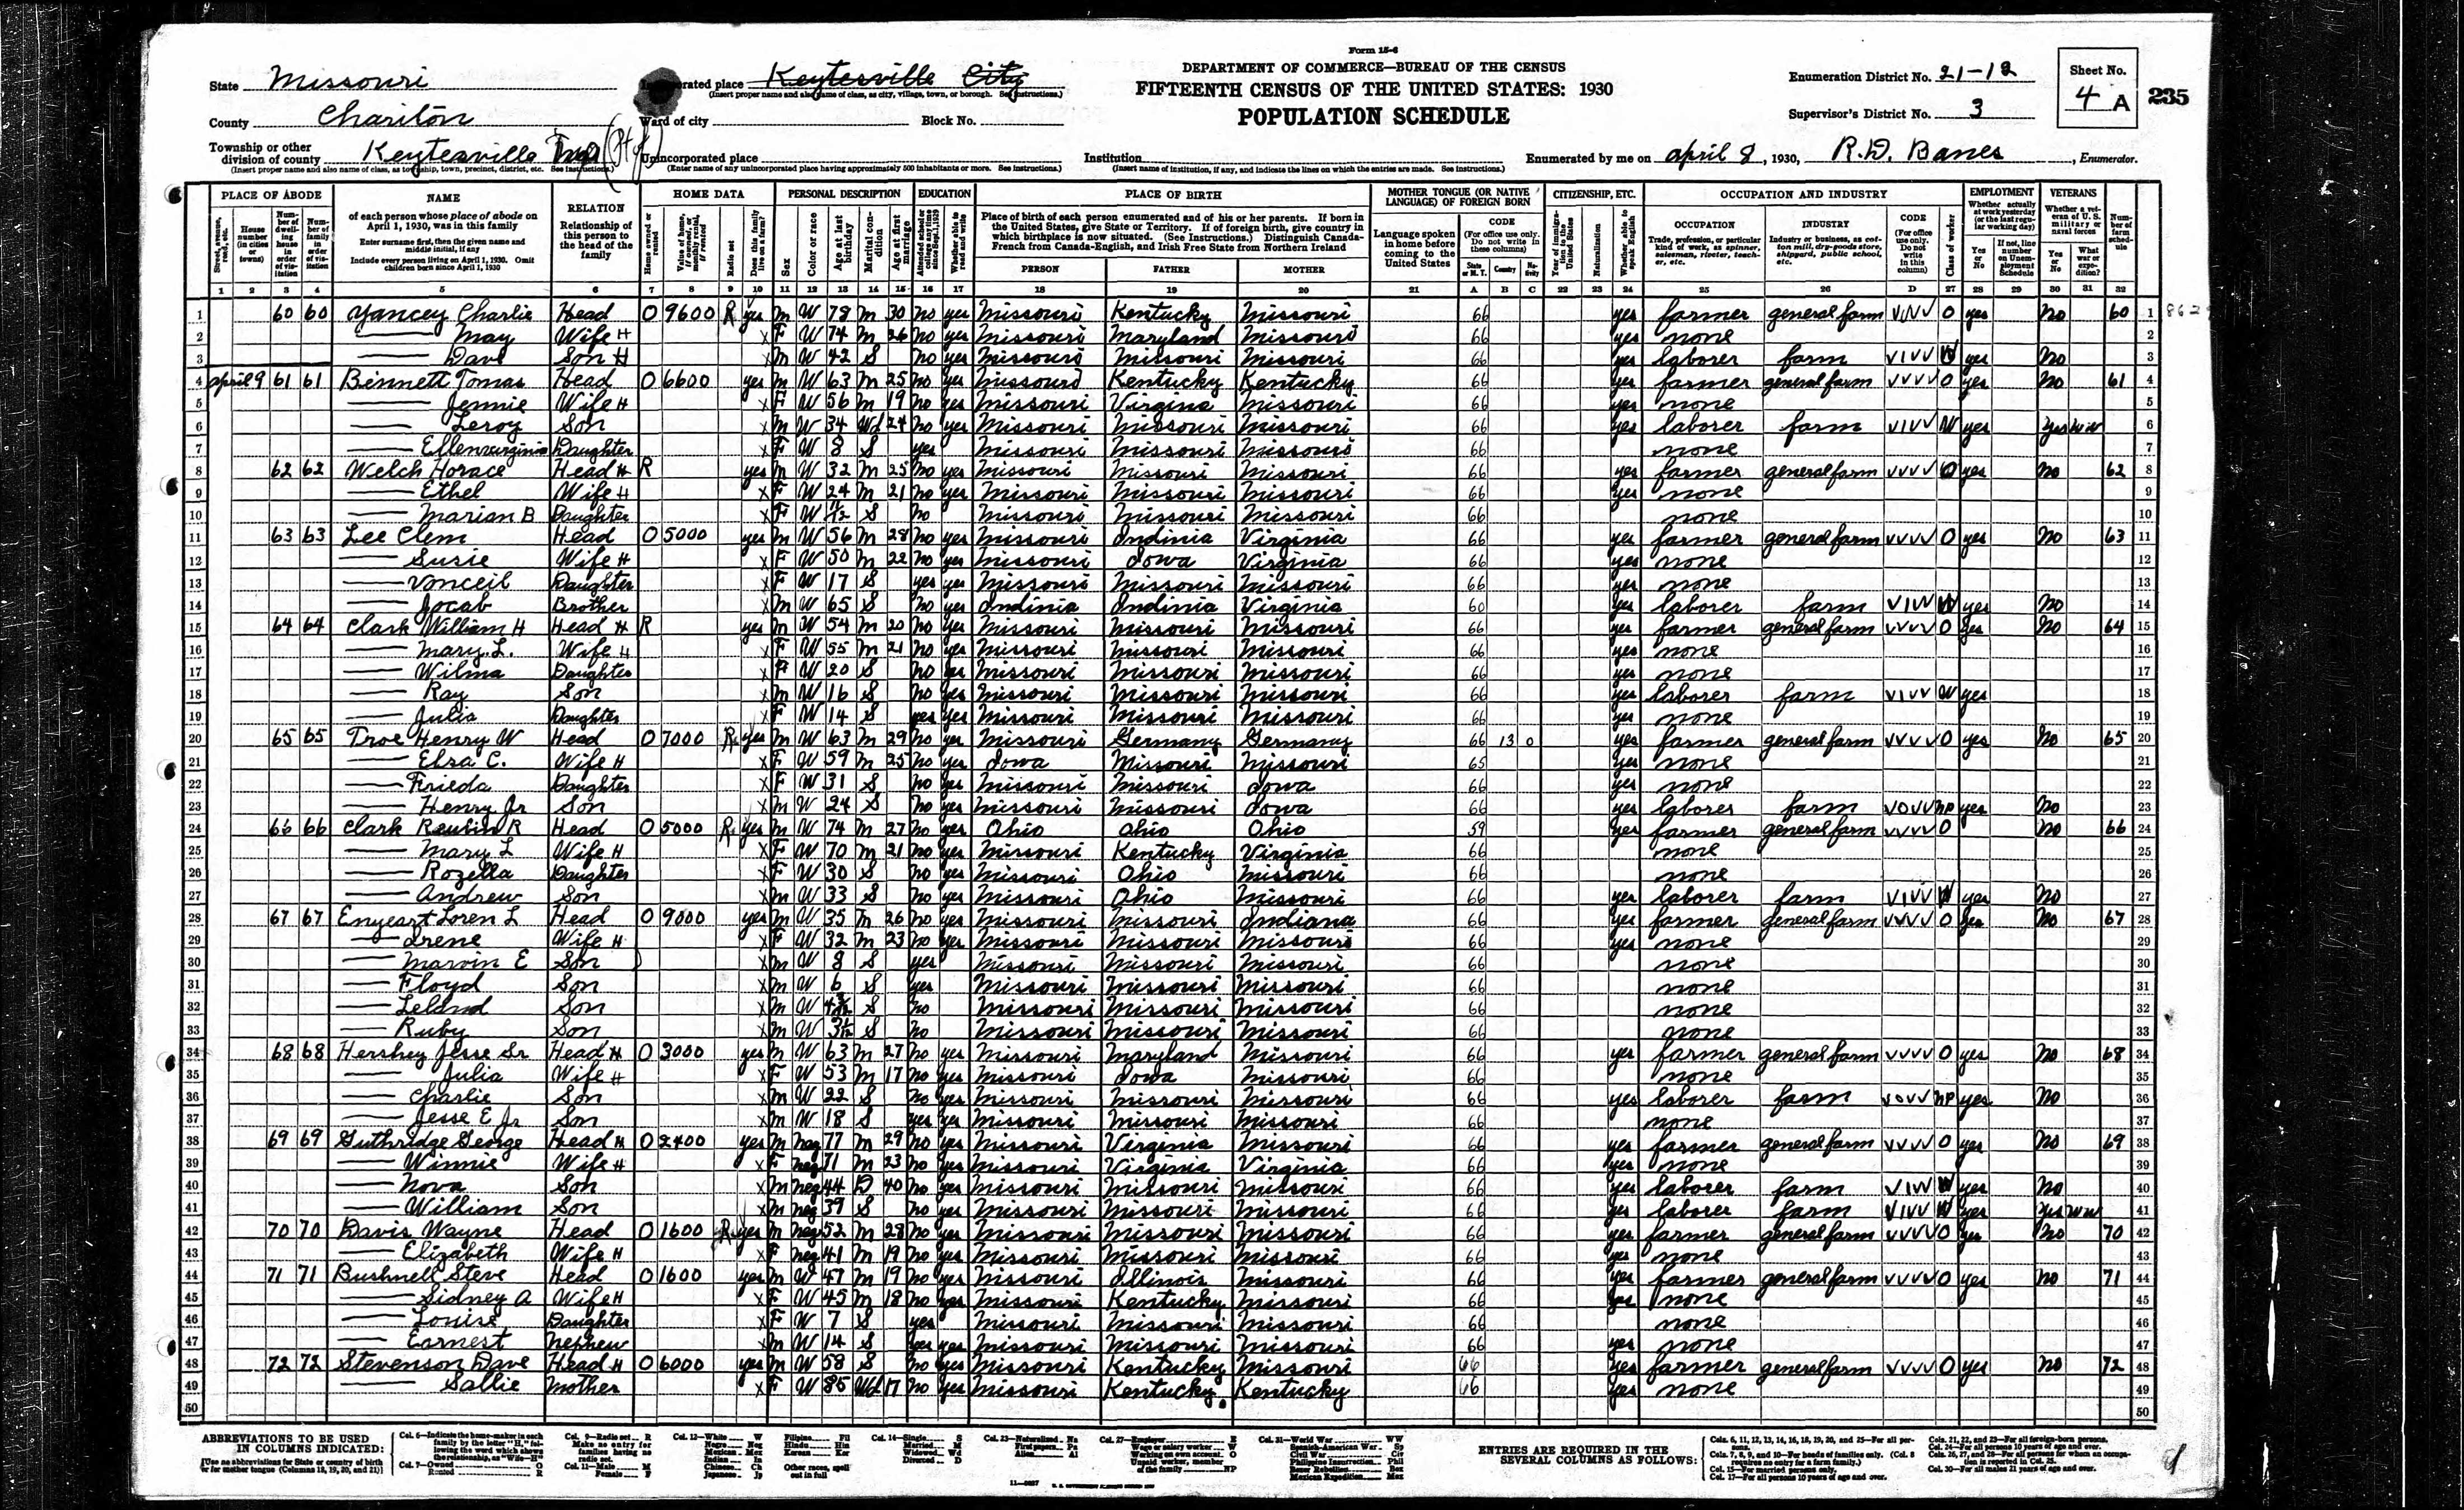 Form 15-6
State Missouri
County Chariton
Township or other division of county Keytesville Twp (Pt of)
(Insert proper name and also name of class, as township, town, precinct, district, etc. See instructions.)
Incorporated place Keytesville City
(Insert proper name and also name of class, as city, village, town, or borough. See instructions.)
Ward of city Block No.
Unincorporated place
(Enter name of any unincorporated place having approximately 500 inhabitants or more. See instructions.)
DEPARTMENT OF COMMERCE—BUREAU OF THE CENSUS
FIFTEENTH CENSUS OF THE UNITED STATES: 1930
POPULATION SCHEDULE
Institution
(Insert name of institution, if any, and indicate the lines on which the entries are made. See instructions.)
Enumeration District No. 21-12
Supervisor's District No. 3
Sheet No. 4 A
235
Enumerated by me on april 8, 1930, R.D. Banes, Enumerator.
PLACE OF ABODE NAME RELATION HOME DATA PERSONAL DESCRIPTION EDUCATION PLACE OF BIRTH MOTHER TONGUE (OR NATIVE LANGUAGE) OF FOREIGN BORN CITIZENSHIP, ETC. OCCUPATION AND INDUSTRY EMPLOYMENT VETERANS
PERSON FATHER MOTHER
1 2 3 4 5 6 7 8 9 10 11 12 13 14 15 16 17 18 19 20 21 A B C 22 23 24 25 26 D 27 28 29 30 31 32
1 60 60 Yancey Charlie Head O 9600 R yes M W 78 M 30 no yes Missouri Kentucky Missouri 66 yes farmer general farm VVVV O yes No 60 1
2 — May Wife H x F W 74 M 26 no yes Missouri Maryland Missouri 66 yes none 2
3 — Dave Son H x M W 42 S no yes Missouri Missouri Missouri 66 yes laborer farm V1VV W yes No 3
4 april 9 61 61 Bennett Tomas Head O 6600 yes M W 63 M 25 no yes Missouri Kentucky Kentucky 66 yes farmer general farm VVVV O yes No 61 4
5 — Jennie Wife H x F W 56 M 19 no yes Missouri Virgina Missouri 66 yes none 5
6 — Leroy Son x M W 34 Wd 24 no yes Missouri Missouri Missouri 66 yes laborer farm V1VV W yes Yes WW 6
7 — Ellenvirginia Daughter x F W 8 S yes Missouri Missouri Missouri 66 none 7
8 62 62 Welch Horace Head H R yes M W 32 M 25 no yes Missouri Missouri Missouri 66 yes farmer general farm VVVV O yes No 62 8
9 — Ethel Wife H x F W 24 M 21 no yes Missouri Missouri Missouri 66 yes none 9
10 — Marian B Daughter x F W S no Missouri Missouri Missouri 66 none 10
11 63 63 Lee Clem Head O 5000 yes M W 56 M 28 no yes Missouri Indinia Virginia 66 yes farmer general farm VVVV O yes No 63 11
12 — Susie Wife H x F W 50 M 22 no yes Missouri Iowa Virginia 66 yes none 12
13 — Vonceil Daughter x F W 17 S yes yes Missouri Missouri Missouri 66 yes none 13
14 — Jocab Brother x M W 65 S no yes Indinia Indinia Virginia 60 yes laborer farm V1VV W yes No 14
15 64 64 Clark William H Head H R yes M W 54 M 20 no yes Missouri Missouri Missouri 66 yes farmer general farm VVVV O yes No 64 15
16 — Mary L. Wife H x F W 55 M 21 no yes Missouri Missouri Missouri 66 yes none 16
17 — Wilma Daughter x F W 20 S no yes Missouri Missouri Missouri 66 yes none 17
18 — Ray Son x M W 16 S no yes Missouri Missouri Missouri 66 yes laborer farm V1VV W yes 18
19 — Julia Daughter x F W 14 S yes yes Missouri Missouri Missouri 66 yes none 19
20 65 65 Troe Henry W Head O 7000 R yes M W 63 M 29 no yes Missouri Germany Germany 66 13 0 yes farmer general farm VVVV O yes No 65 20
21 — Elza C. Wife H x F W 59 M 25 no yes Iowa Missouri Missouri 65 yes none 21
22 — Frieda Daughter x F W 31 S no yes Missouri Missouri Iowa 66 yes none 22
23 — Henry Jr Son x M W 24 S no yes Missouri Missouri Iowa 66 yes laborer farm VOVV NP yes No 23
24 66 66 Clark Reubin R Head O 5000 R yes M W 74 M 27 no yes Ohio Ohio Ohio 59 yes farmer general farm VVVV O No 66 24
25 — Mary L Wife H x F W 70 M 21 no yes Missouri Kentucky Virginia 66 none 25
26 — Rozella Daughter x F W 30 S no yes Missouri Ohio Missouri 66 none 26
27 — Andrew Son x M W 33 S no yes Missouri Ohio Missouri 66 yes laborer farm V1VV W yes No 27
28 67 67 Enyeart Loren L Head O 9000 yes M W 35 M 26 no yes Missouri Missouri Indiana 66 yes farmer general farm VVVV O yes No 67 28
29 — Irene Wife H x F W 32 M 23 no yes Missouri Missouri Missouri 66 yes none 29
30 — Marvin E Son x M W 8 S yes Missouri Missouri Missouri 66 none 30
31 — Floyd Son x M W 6 S yes Missouri Missouri Missouri 66 none 31
32 — Leland Son x M W S no Missouri Missouri Missouri 66 none 32
33 — Ruby Son x M W S no Missouri Missouri Missouri 66 none 33
34 68 68 Hershey Jesse Sr Head H O 3000 yes M W 63 M 27 no yes Missouri Maryland Missouri 66 yes farmer general farm VVVV O yes No 68 34
35 — Julia Wife H x F W 53 M 17 no yes Missouri Iowa Missouri 66 none 35
36 — Charlie Son x M W 22 S no yes Missouri Missouri Missouri 66 yes laborer farm VOVV NP yes No 36
37 — Jesse E Jr Son x M W 18 S yes yes Missouri Missouri Missouri 66 none 37
38 69 69 Guthridge George Head H O 2400 yes M neg 77 M 29 no yes Missouri Virginia Missouri 66 yes farmer general farm VVVV O yes No 69 38
39 — Winnie Wife H x F neg 71 M 23 no yes Missouri Virginia Virginia 66 yes none 39
40 — Nova Son x M neg 44 D 40 no yes Missouri Missouri Missouri 66 yes laborer farm V1VV W yes No 40
41 — William Son x M neg 39 S no yes Missouri Missouri Missouri 66 yes laborer farm V1VV W yes Yes WW 41
42 70 70 Davis Wayne Head O 1600 R yes M neg 52 M 28 no yes Missouri Missouri Missouri 66 yes farmer general farm VVVV O yes No 70 42
43 — Elizabeth Wife H x F neg 41 M 19 no yes Missouri Missouri Missouri 66 yes none 43
44 71 71 Bushnell Steve Head O 1600 yes M W 47 M 19 no yes Missouri Illinois Missouri 66 yes farmer general farm VVVV O yes no 71 44
45 — Sidney A Wife H x F W 45 M 18 no yes Missouri Kentucky Missouri 66 yes none 45
46 — Louise Daughter x F W 7 S yes Missouri Missouri Missouri 66 none 46
47 — Earnest Nephew x M W 14 S yes yes Missouri Missouri Missouri 66 yes none 47
48 72 72 Stevenson Dave Head H O 6000 yes M W 58 S no yes Missouri Kentucky Missouri 66 yes farmer general farm VVVV O yes no 72 48
49 — Sallie Mother x F W 85 Wd 17 no yes Missouri Kentucky Kentucky 66 yes none 49
50 50
ABBREVIATIONS TO BE USED IN COLUMNS INDICATED:
ENTRIES ARE REQUIRED IN THE SEVERAL COLUMNS AS FOLLOWS: